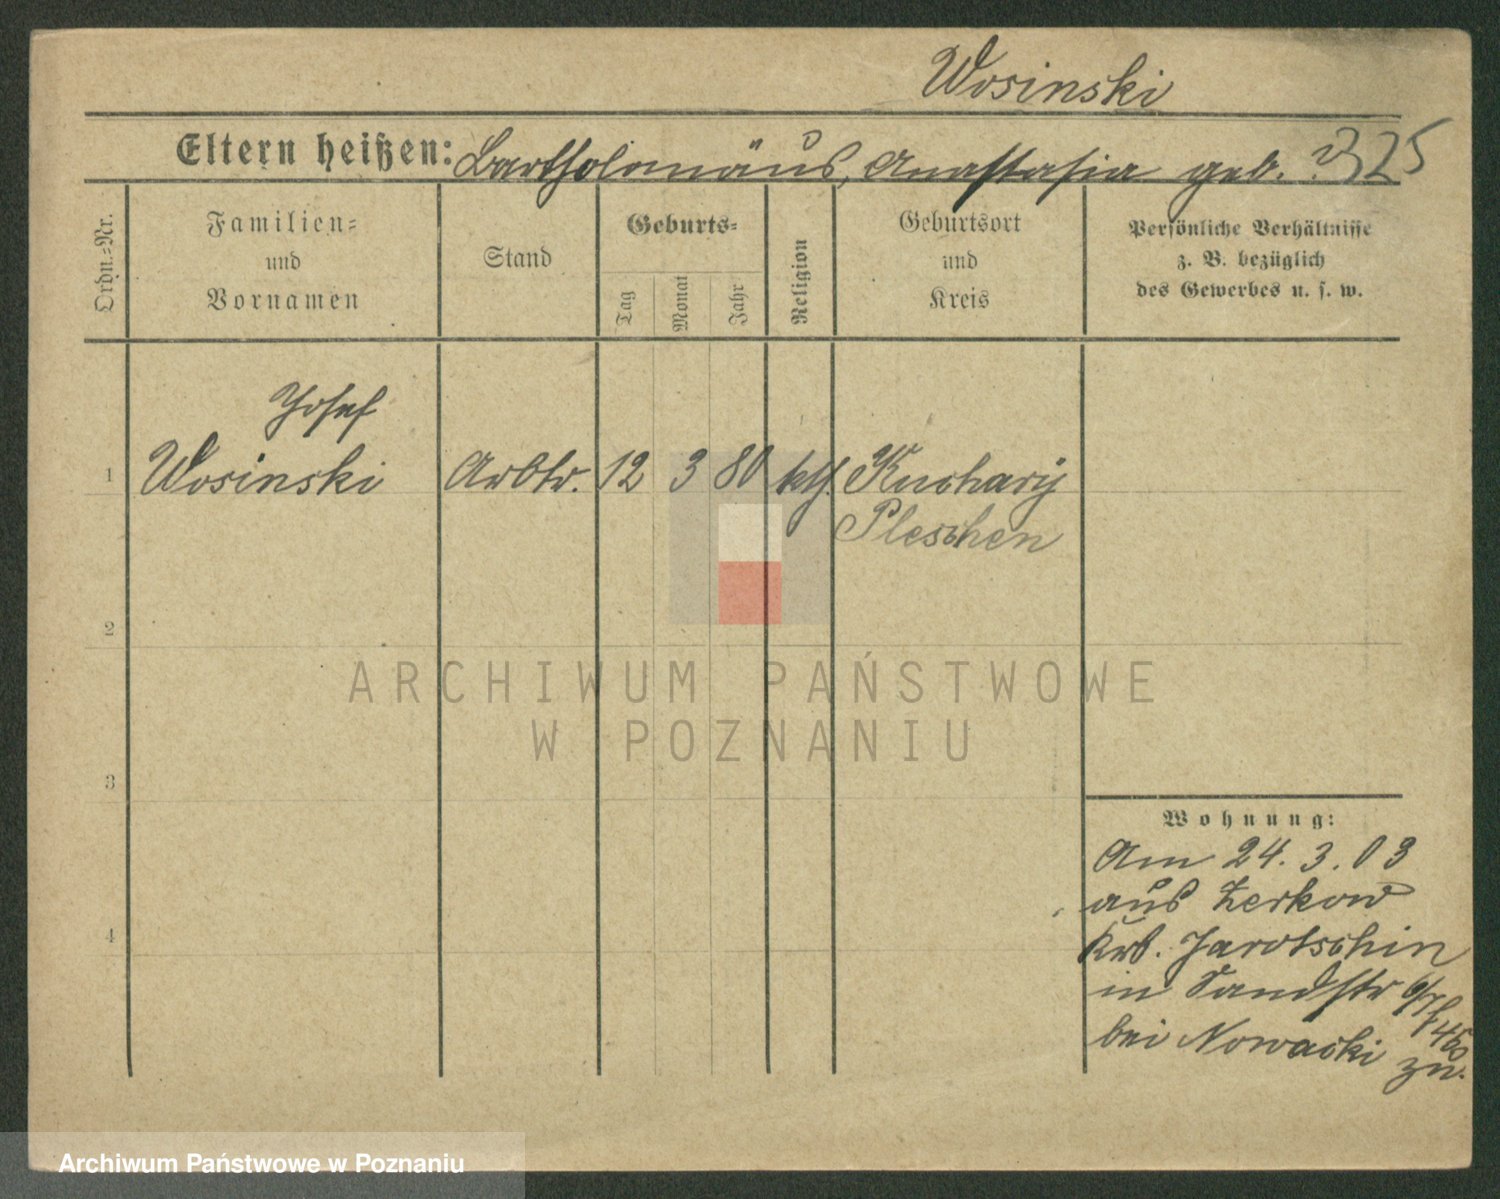 Wosinski
Eltern heißen: Bartholomäus, Anastasia geb. ?
325
Ordn.=Nr.
Familien=
und
Vornamen
Stand
Geburts=
Tag
Monat
Jahr
Religion
Geburtsort
und
Kreis
Persönliche Verhältnisse
z. B. bezüglich
des Gewerbes u. s. w.
Josef
1 Wosinski Arbtr. 12 3 80 kth. Kuchary
Pleschen
2
3
4
ARCHIWUM PAŃSTWOWE
W POZNANIU
Wohnung:
Am 24. 3. 03
aus Zerkow
Jarotschin
in Sandstr
bei Nowacki zu.
Archiwum Państwowe w Poznaniu